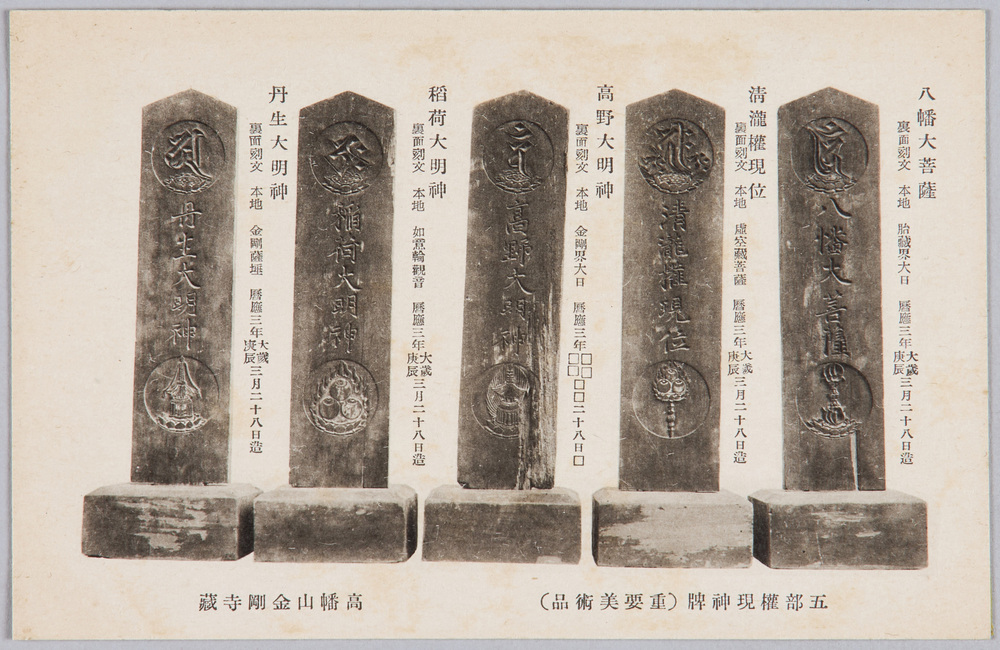 八幡大菩薩
裏面刻文　本地　胎藏界大日　曆應三年大歳庚辰三月二十八日造
八幡大菩薩
清瀧權現位
裏面刻文　本地　虛空藏菩薩　曆應三年大歳庚辰三月二十八日造
清瀧權現位
高野大明神
裏面刻文　本地　金剛界大日　曆應三年□□□□□□二十八日□
高野大明神
稻荷大明神
裏面刻文　本地　如意輪觀音　曆應三年大歳庚辰三月二十八日造
稻荷大明神
丹生大明神
裏面刻文　本地　金剛薩埵　曆應三年大歳庚辰三月二十八日造
丹生大明神
五部權現神牌（重要美術品）
高幡山金剛寺藏